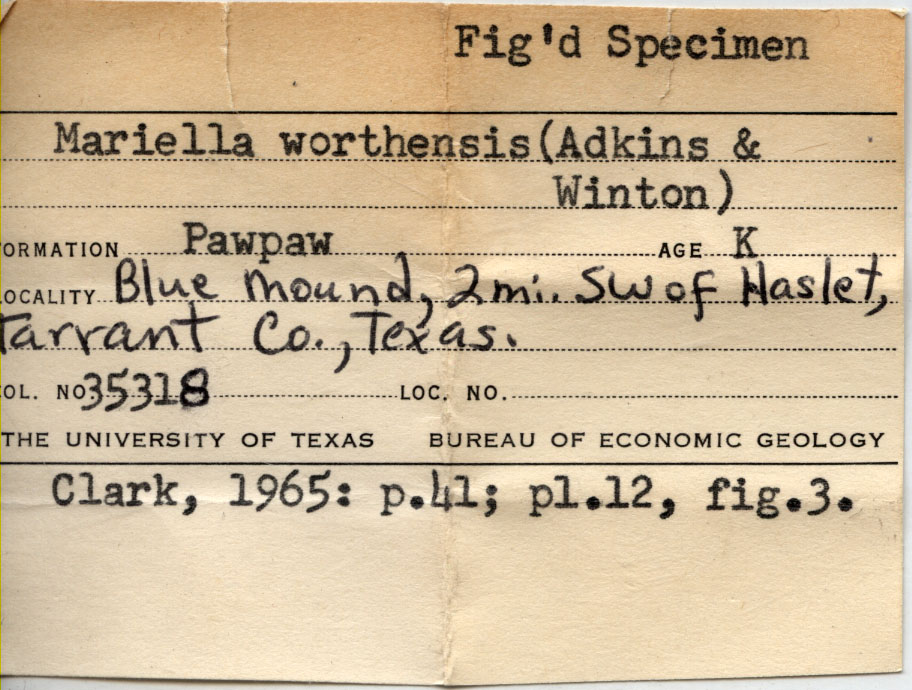 Fig'd Specimen
Mariella worthensis(Adkins &
Winton)
ORMATION Pawpaw AGE K
OCALITY Blue Mound, 2mi. SW of Haslet,
Tarrant Co., Texas.
OL. NO 35318 LOC. NO.
THE UNIVERSITY OF TEXAS BUREAU OF ECONOMIC GEOLOGY
Clark, 1965: p.41; pl.12, fig.3.